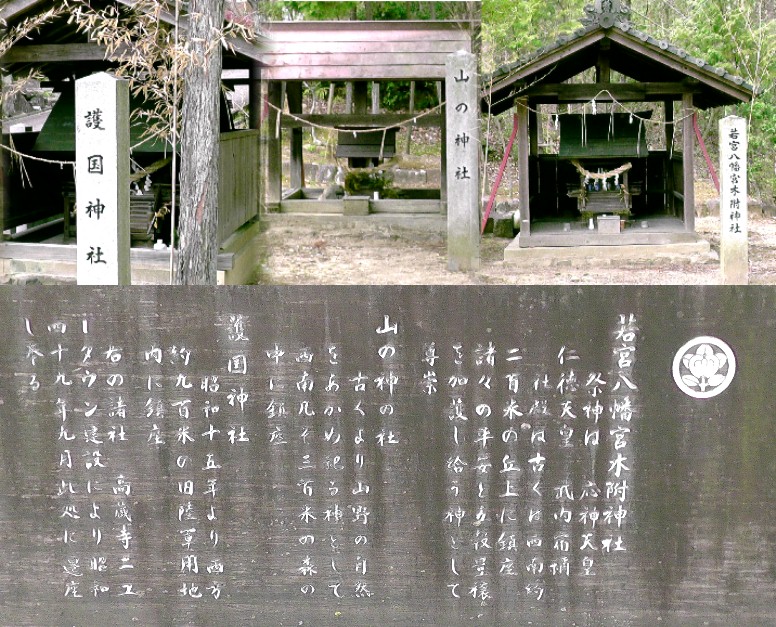 護国神社
山の神社
若宮八幡宮木附神社
若宮八幡宮木附神社
祭神は 応神天皇
仁徳天皇 武内宿禰
社殿は古くは西南約
二百米の丘上に鎮座
諸々の平安と五穀豊穣
を加護し給う神として
尊崇
山の神の社
古くより山野の自然
をあがめ祀る神として
西南凡そ三百米の森の
中に鎮座
護国神社
昭和十五年より西方
約九百米の旧陸軍用地
内に鎮座
右の諸社 高蔵寺ニュ
ータウン建設により昭和
四十九年九月此処に遷座
し奉る